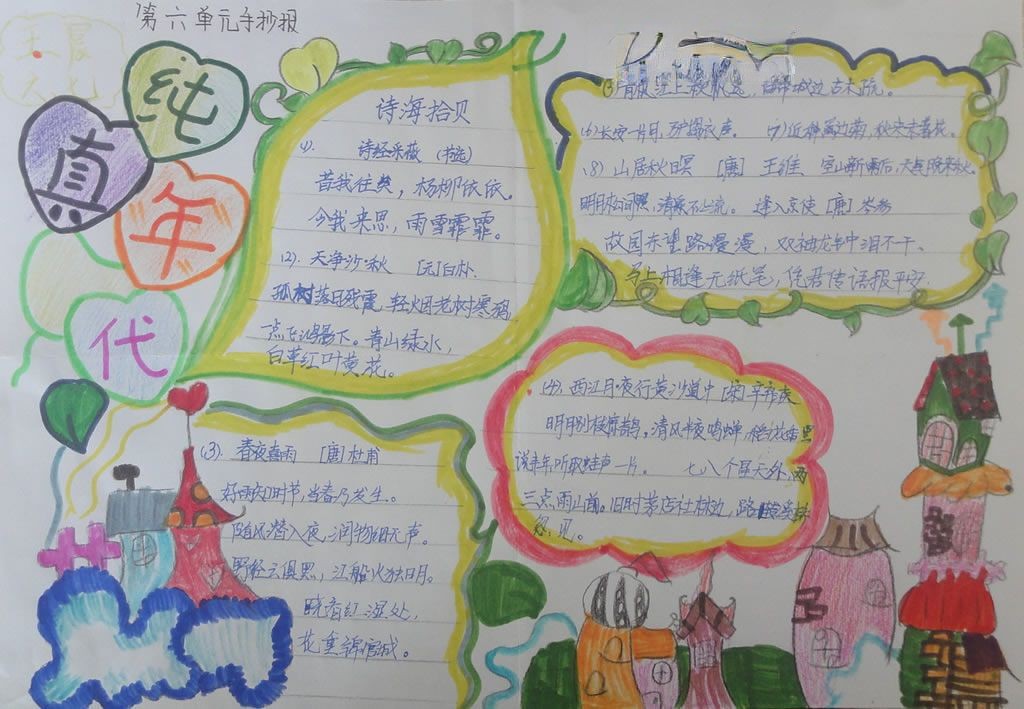 第六单元手抄报
纯
真
年
代
诗海拾贝
(1). 诗经采薇 (书选)
昔我往矣，杨柳依依。
今我来思，雨雪霏霏。
(2). 天净沙·秋 [元]白朴.
孤树落日残霞，轻烟老树寒鸦，
一点飞鸿影下。青山绿水，
白草红叶黄花。
(3). 春夜喜雨 [唐]杜甫
好雨知时节，当春乃发生。
随风潜入夜，润物细无声。
野径云俱黑，江船火独明。
晓看红湿处，
花重锦官城。
(4). 西江月·夜行黄沙道中 [宋]辛弃疾
明月别枝惊鹊，清风半夜鸣蝉，稻花香里
说丰年，听取蛙声一片。 七八个星天外，两
三点雨山前。旧时茅店社林边，路
忽见。
江上 城边古木疏。
(6) 长安一片月，万户捣衣声。 (7) 近种篱边菊，秋来未著花。
(8) 山居秋日暝 [唐] 王维 空山新雨后，天气晚来秋。
明月松间照，清泉石上流。 逢入京使 [唐] 岑参
故园东望路漫漫，双袖龙钟泪不干、
马上相逢无纸笔，凭君传语报平安.